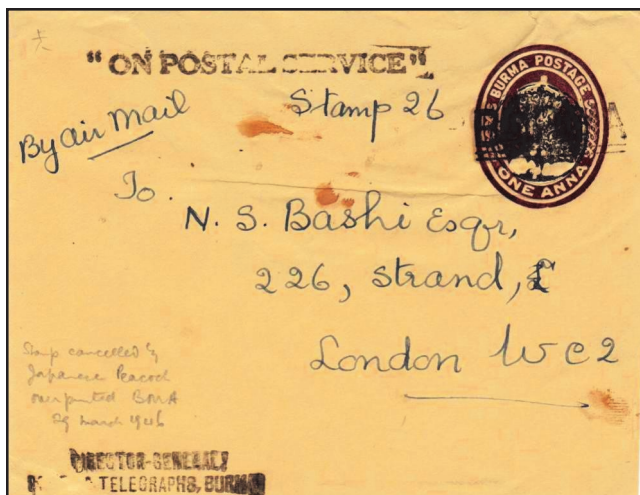 "ON POSTAL SERVICE"
BURMA POSTAGE
ONE ANNA
Stamp 26
By air Mail
To
N. S. Bashi Esqr,
226, Strand,
London WC2
Stamp cancelled by
Japanese Peacock
overprinted BMA
29 March 1946
DIRECTOR-GENERAL,
TELEGRAPHS, BURMA